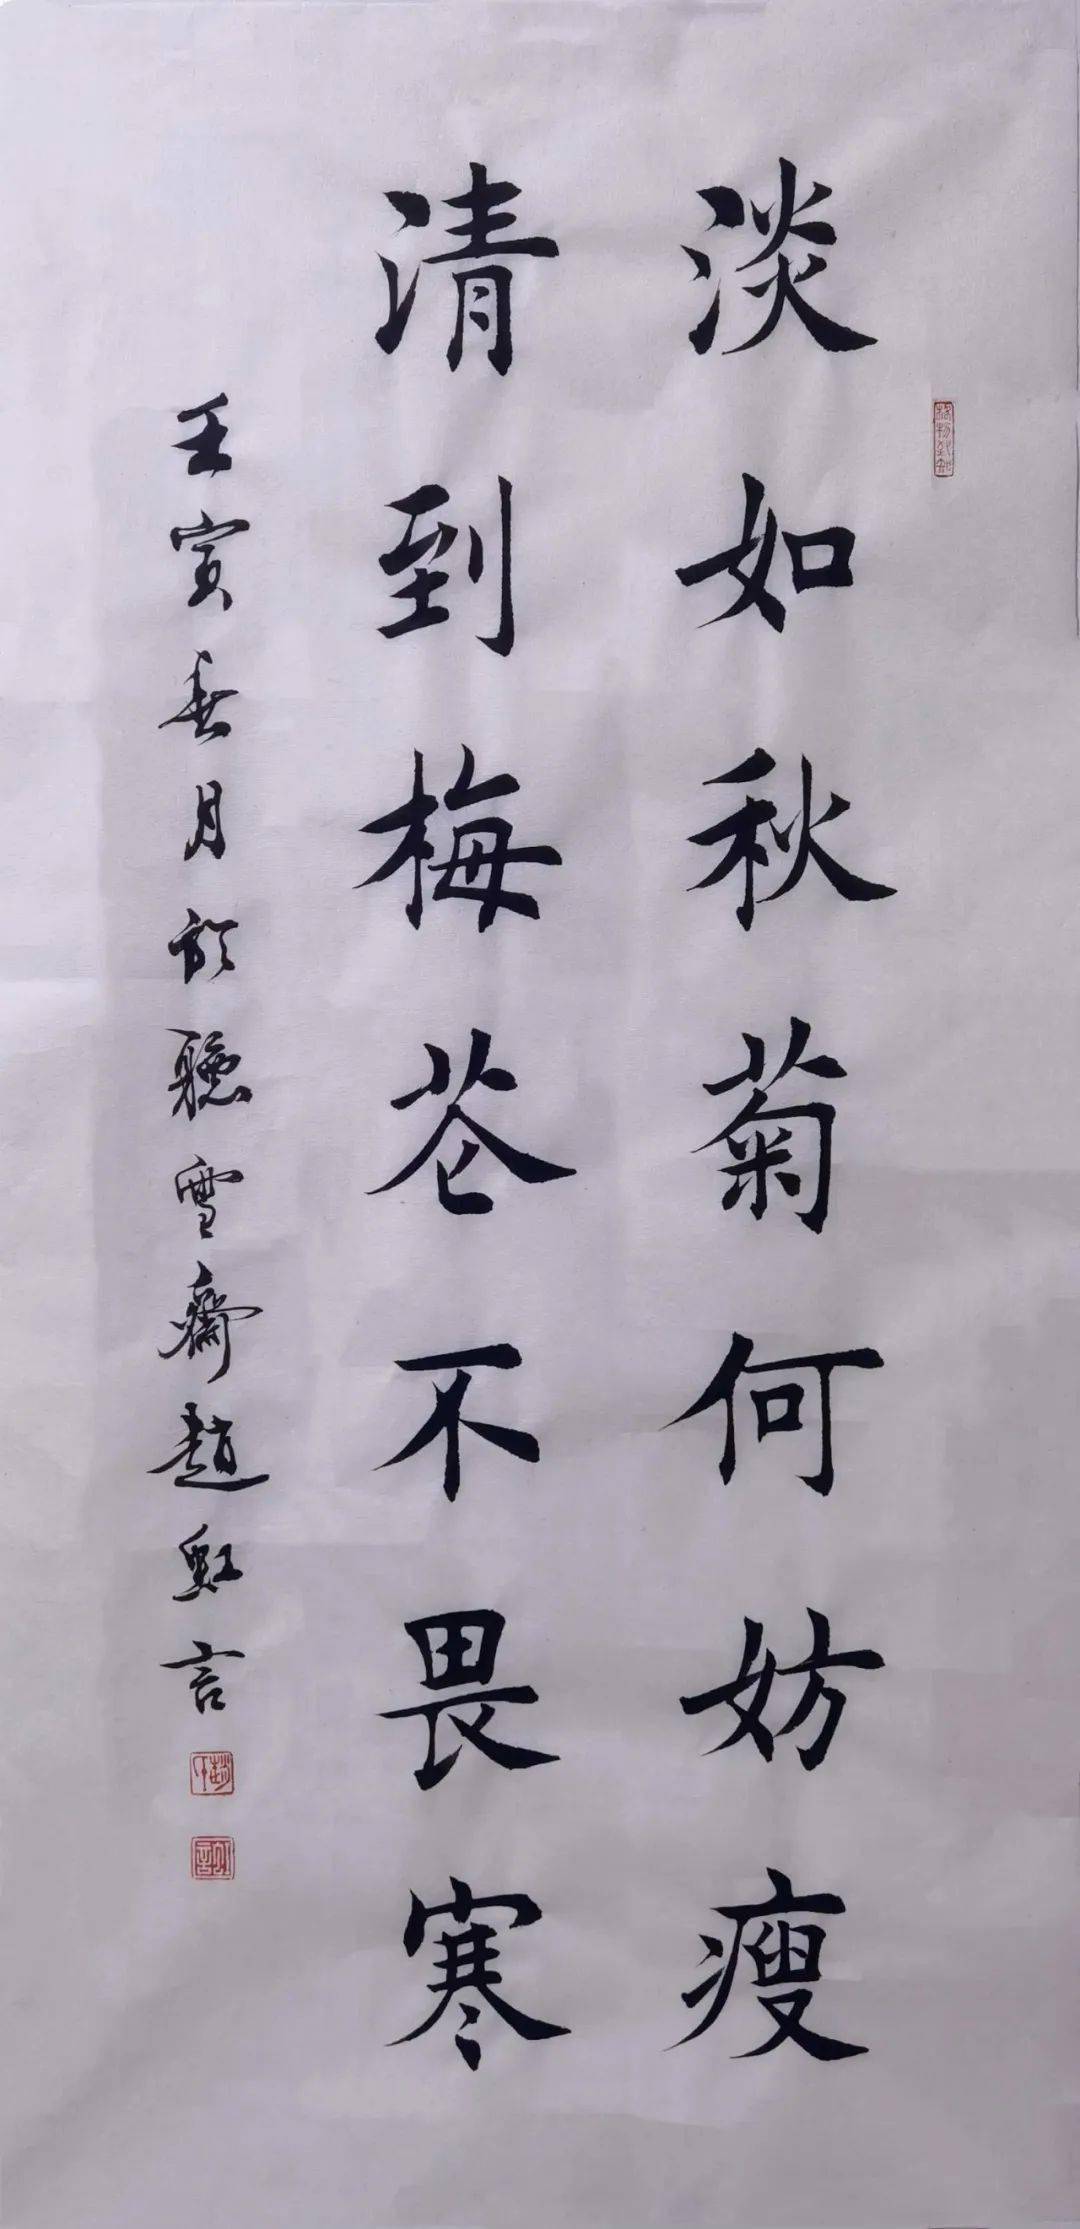 淡如秋菊何妨瘦
清到梅花不畏寒
壬寅春月於聽雪齋趙虹言